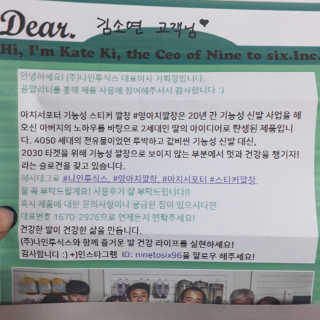 Dear. 김소연 고객님♥
Hi, I'm Kate Ki, the Ceo of Nine to six.Inc.
안녕하세요! (주)나인투식스 대표이사 기희경입니다.
응원리터를 통해 제품 사용에 참여해주셔서 감사합니다 :)
아치서포터 기능성 스티커 깔창 #앙아지깔창은 20년 간 기능성 신발 사업을 해
오신 아버지의 노하우를 바탕으로 2세대인 딸의 아이디어로 탄생된 제품입니
다. 4050 세대의 전유물이었던 투박하고 값비싼 기능성 신발 대신,
2030 타겟을 위해 기능성 깔창으로 보이지 않는 부분에서 멋과 건강을 챙기자!
라는 슬로건을 갖고 있습니다.
해시태그로 #나인투식스, #앙아지깔창, #아치서포터 #스티커깔창
을 꼭 부탁드릴게요! 사용후기 잘 부탁드립니다!
혹시 제품에 대한 문의사항이나 궁금한 점이 있으시다면
대표번호 1670-2926으로 언제든지 연락주세요!
건강한 발이 건강한 삶을 만듭니다.
(주)나인투식스와 함께 즐거운 발 건강 라이프를 실현하세요!
감사합니다 :) +)인스타그램 ID: ninetosix96을 팔로우 해주세요!